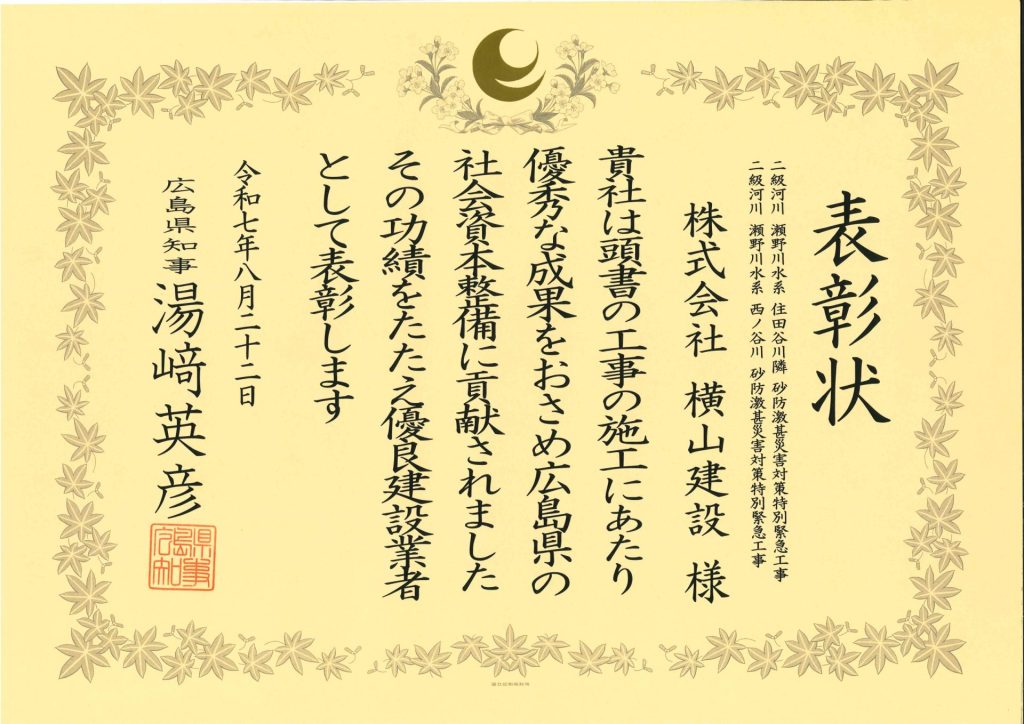 表彰状
二級河川 瀬野川水系 住田谷川隣 砂防激甚災害対策特別緊急工事
二級河川 瀬野川水系 西ノ谷川 砂防激甚災害対策特別緊急工事
株式会社 横山建設 様
貴社は頭書の工事の施工にあたり
優秀な成果をおさめ広島県の
社会資本整備に貢献されました
その功績をたたえ優良建設業者
として表彰します
令和七年八月二十二日
広島県知事 湯﨑英彦
広島県知事